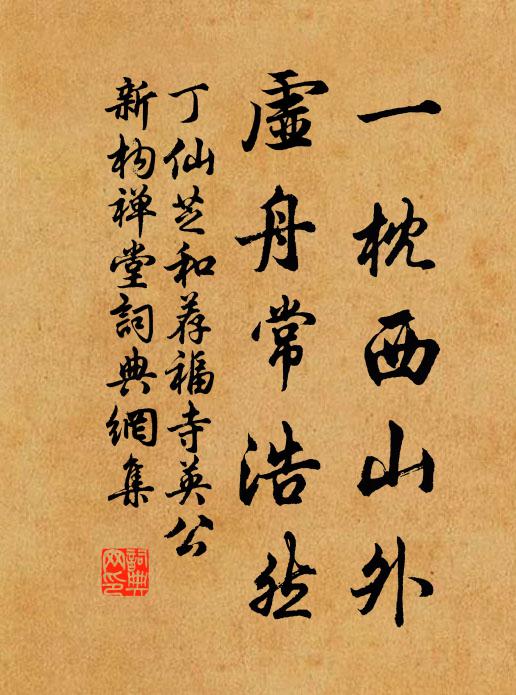 一枕西山外
虛舟常浩然
丁仙芝和荐福寺英公
新构禅堂詞典網集
詞典网印